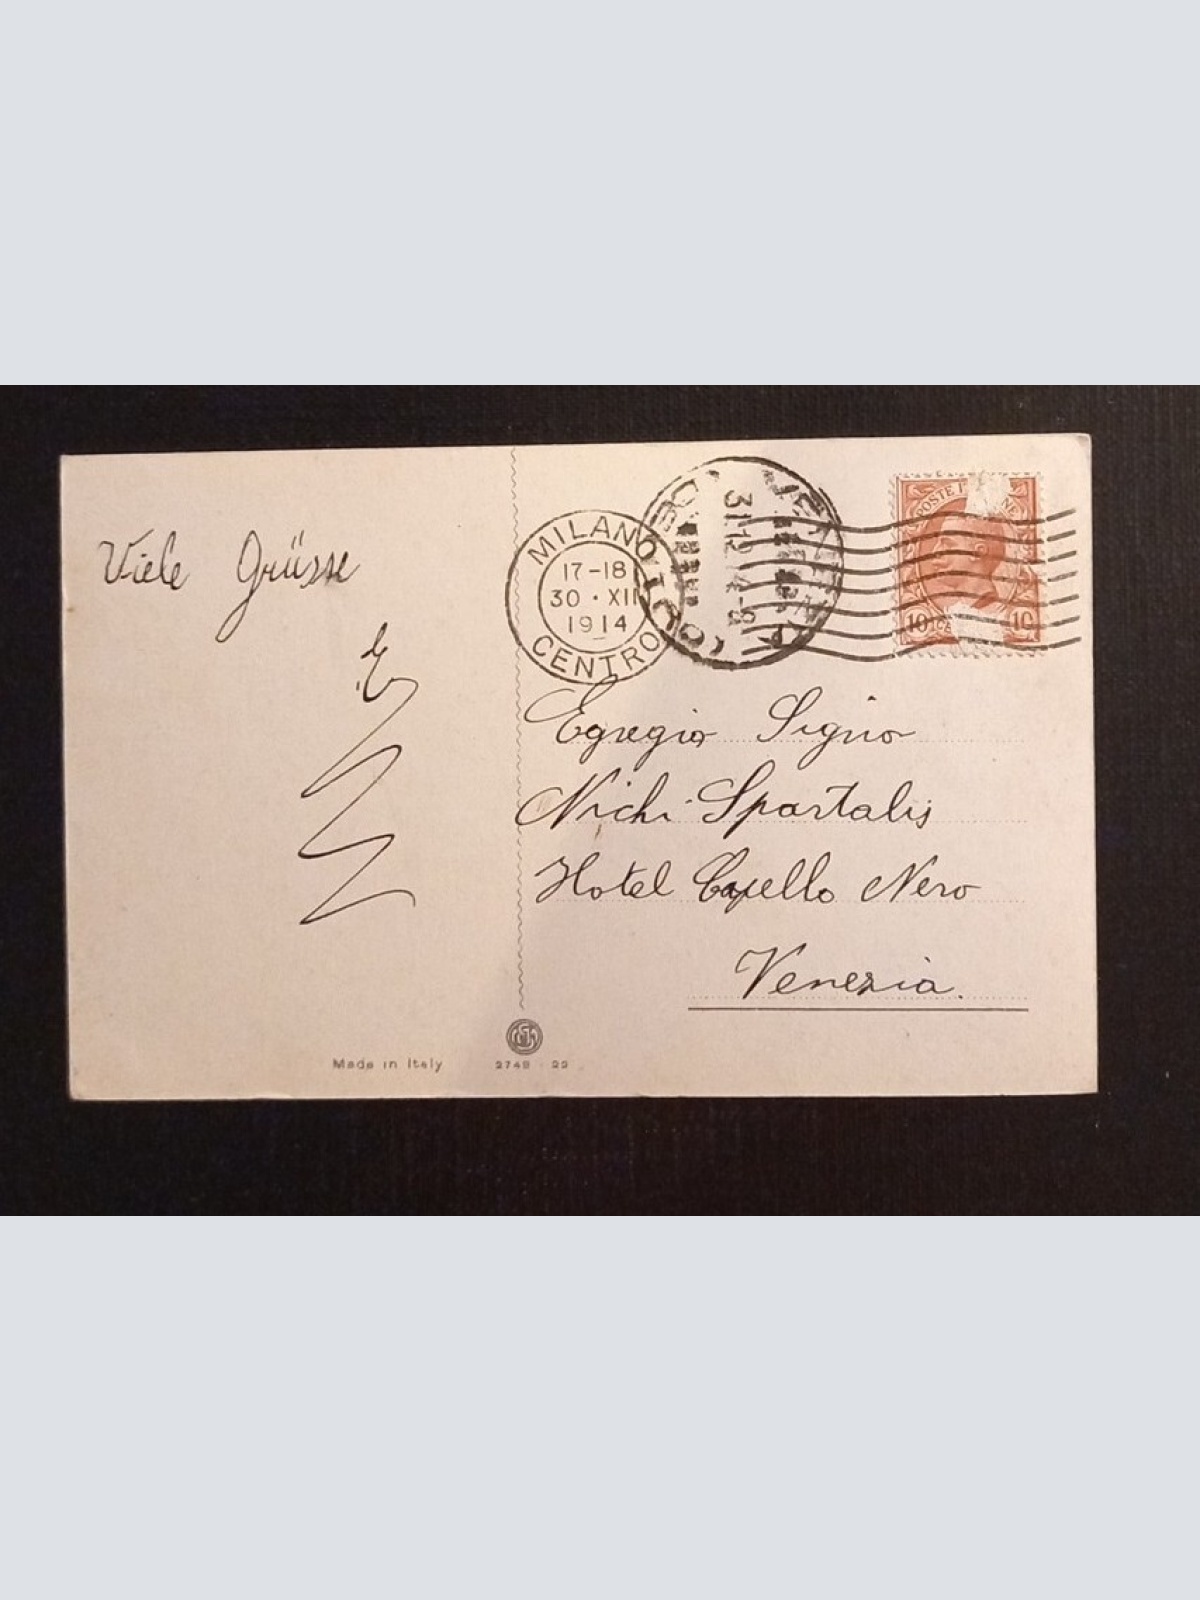 Viele Grüsse
E
MILANO
CENTRO
17-18
30 · XII
1914
31.12.14-9
POSTE
10
10
Egregio Signo
Nichi Spartalis
Hotel Capello Nero
Venezia.
Made in Italy
2749 - 22